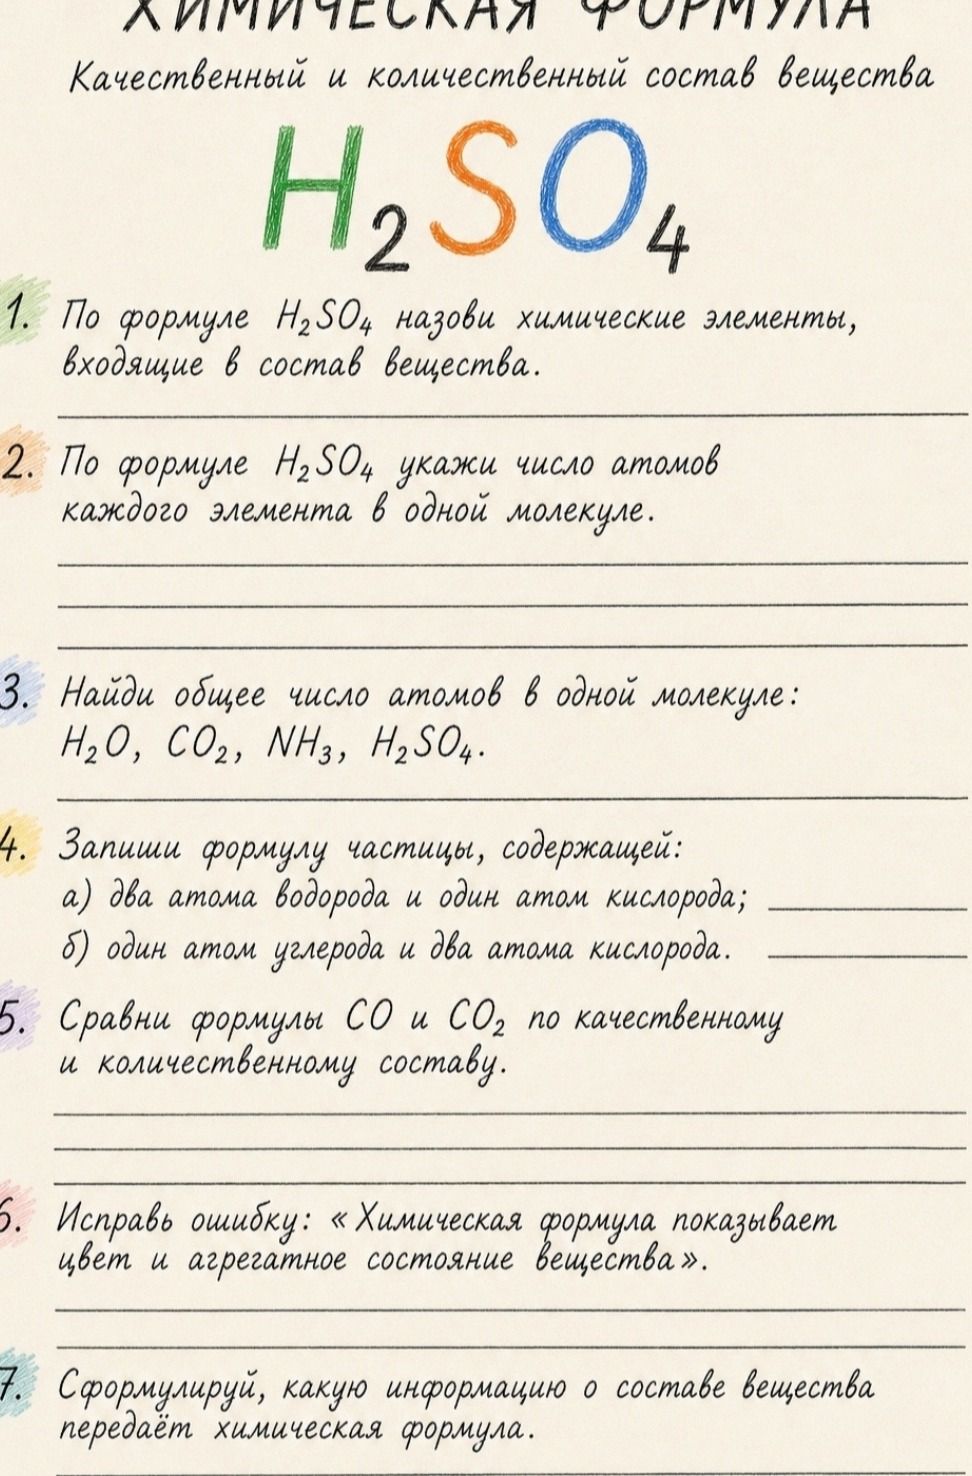 ХИМИЧЕСКАЯ ФОРМУЛА
Качественный и количественный состав вещества
H₂SO₄
1. По формуле H₂SO₄ назови химические элементы,
входящие в состав вещества.
2. По формуле H₂SO₄ укажи число атомов
каждого элемента в одной молекуле.
3. Найди общее число атомов в одной молекуле:
H₂O, CO₂, NH₃, H₂SO₄.
4. Запиши формулу частицы, содержащей:
а) два атома водорода и один атом кислорода;
б) один атом углерода и два атома кислорода.
5. Сравни формулы CO и CO₂ по качественному
и количественному составу.
6. Исправь ошибку: «Химическая формула показывает
цвет и агрегатное состояние вещества».
7. Сформулируй, какую информацию о составе вещества
передаёт химическая формула.